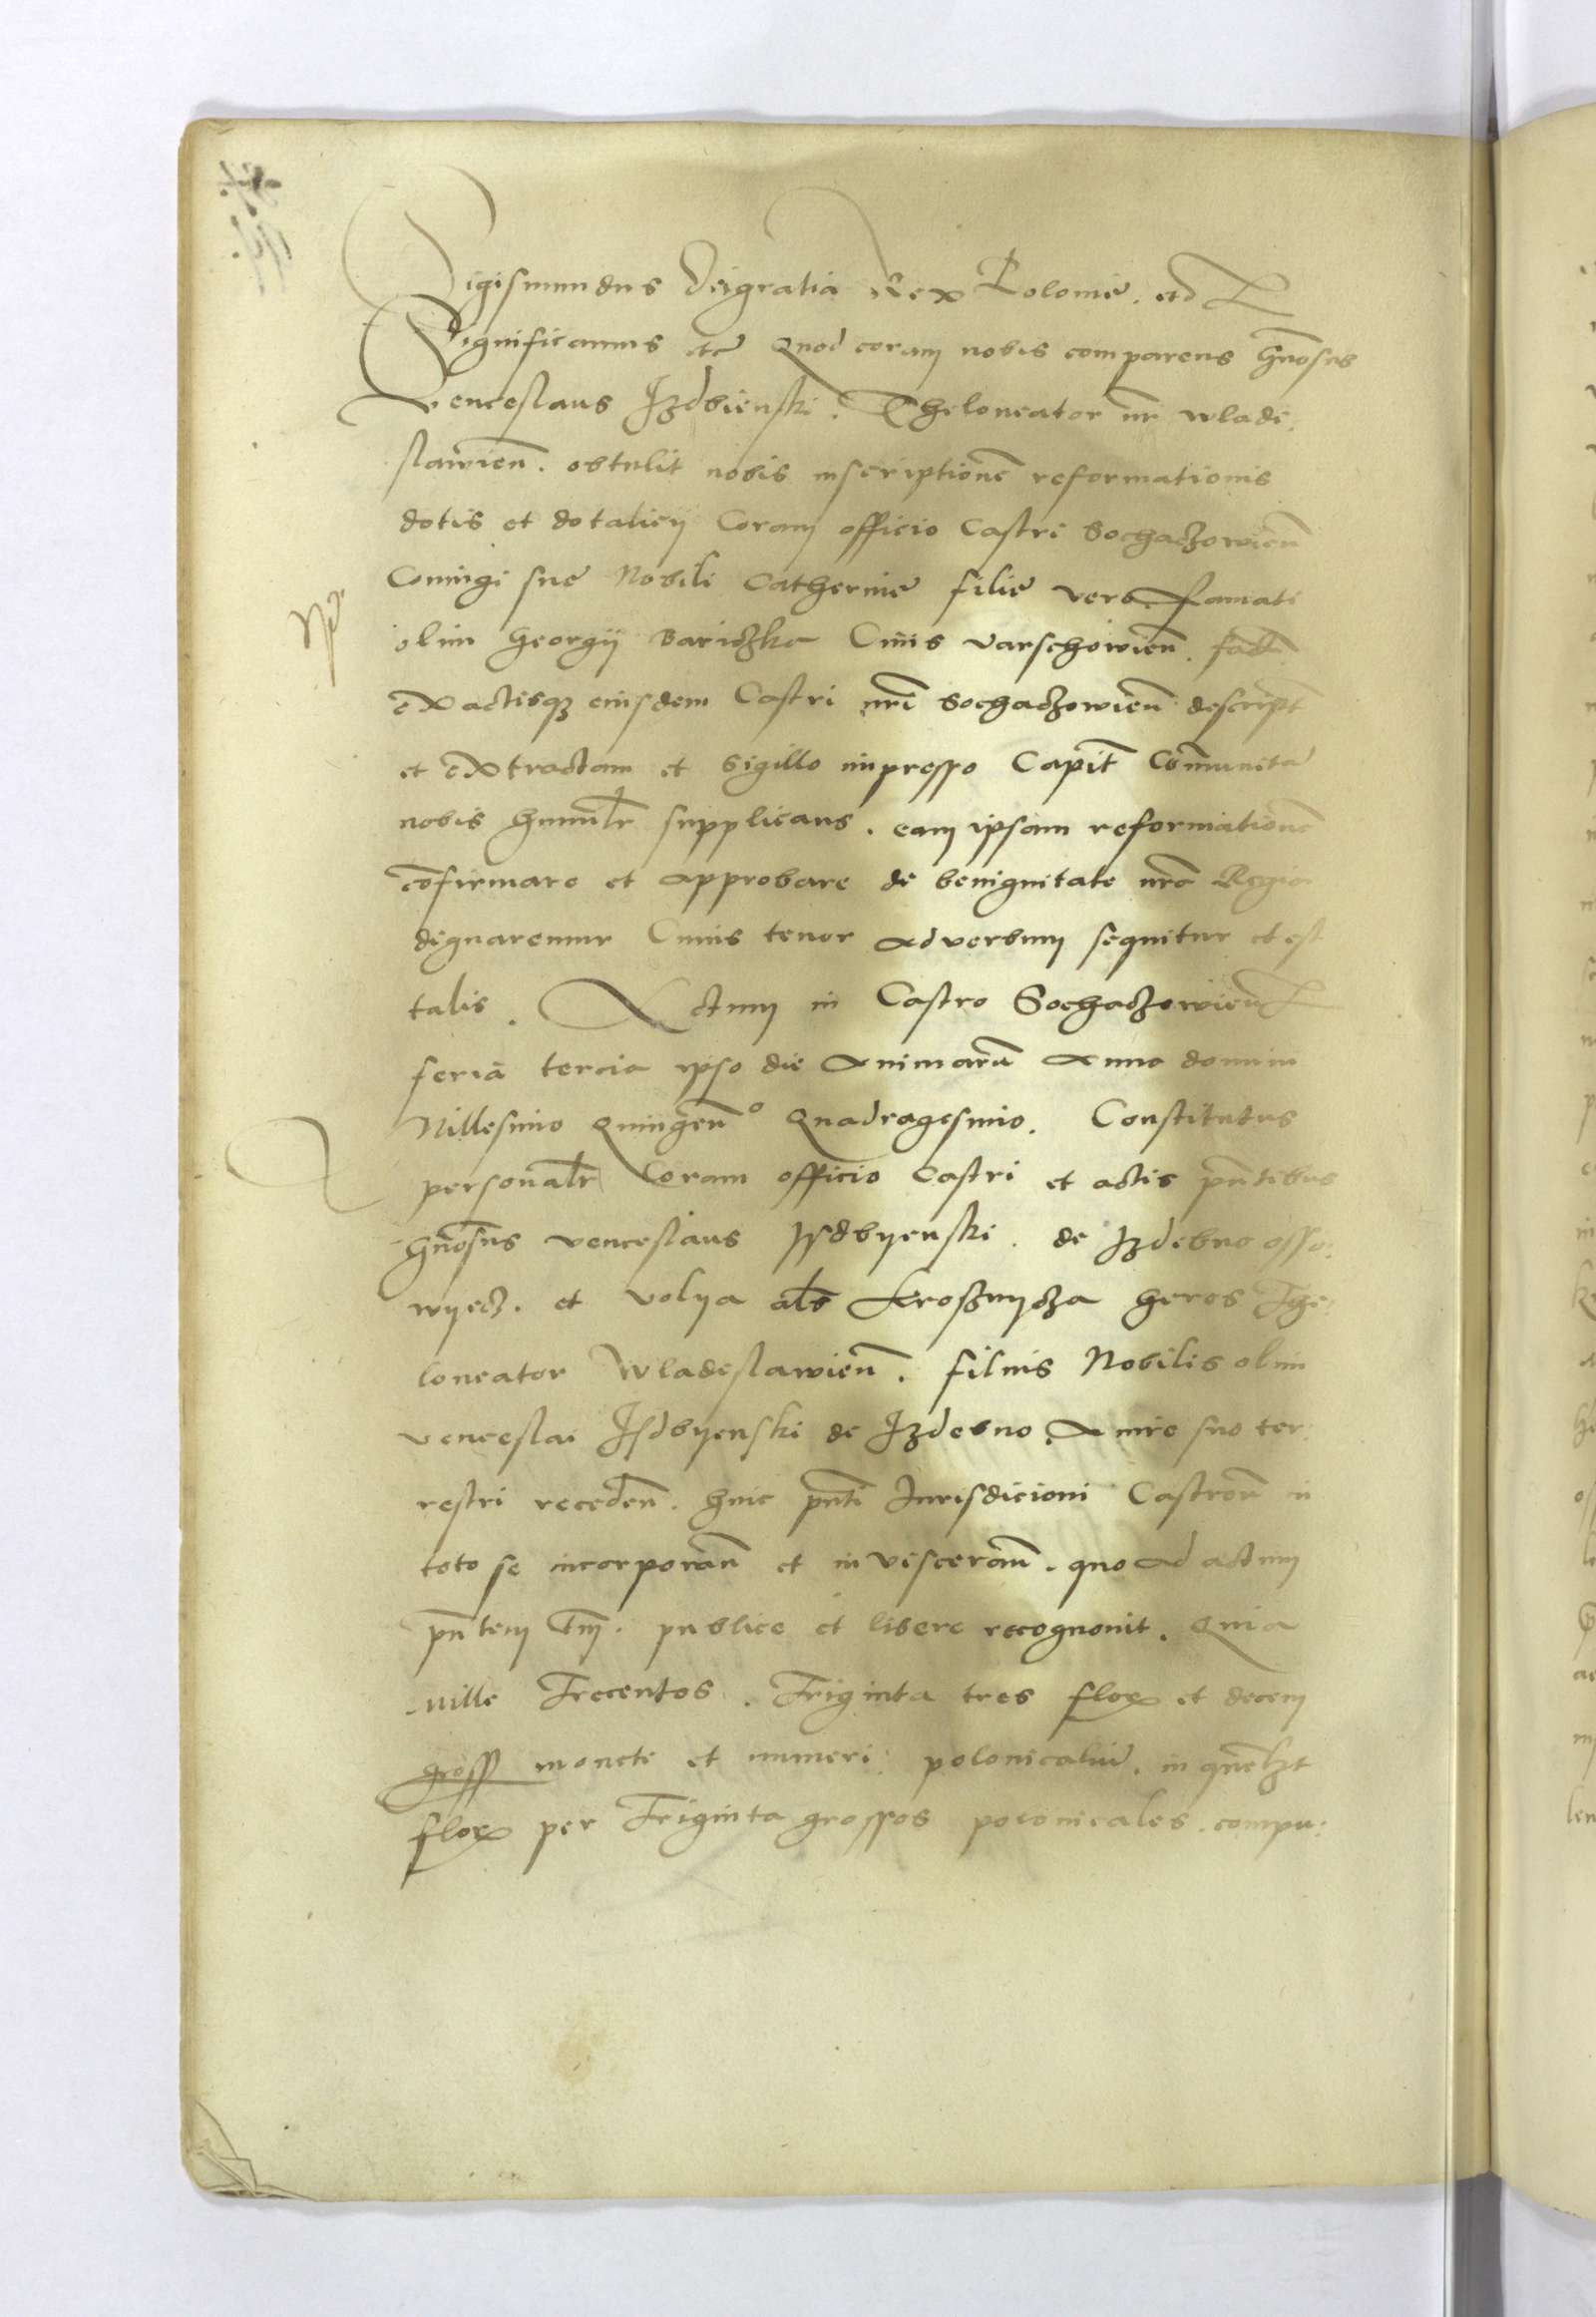 Sigismundus Deigratia Rex Polonie. etc
Significamus etc Quod coram nobis comparens Gnosus
Venceslaus Jzdbienski. Theloneator nr wladi
slawien. obtulit nobis inscriptione reformationis
dotis et dotalicij Coram officio Castri Sochaczowien
Coniugi sue Nobili Catherine filie vero famati
olim Georgij Bariczka Ciuis varschowien. fact
Ex actisq eiusdem Castri nri Sochaczowien descript
et Extractam et Sigillo impresso Capit Communita
nobis humilr supplicans. eam ipsam reformatione
cofirmare et approbare de benignitate nra Regia
dignaremur Cuius tenor ad verbum sequitur et est
talis. Actum in Castro Sochaczowien
feria tercia ipso die Animaru Anno domini
Millesimo Quingen° Quadragesimo. Constitutus
personalr Coram officio Castri et actis pntibus
Gnosus venceslaus Jsdbyenski. de Jzdebno osso:
wyecz. et volya als Kroschnycza heres The:
loneator Wladeslawien. filius Nobilis olim
venceslai Jsdbyenski de Jzdebno. A iure suo ter:
restri receden. huic pnti Jurisdicioni Castren in
toto se incorporan et invisceran. quo ad actum
pntem tm. publice et libere recognouit. Quia
Mille Trecentos. Triginta tres flor et decem
gross monete et numeri polonicaliu. in quelzt
flor per Triginta grossos polonicales. compu: